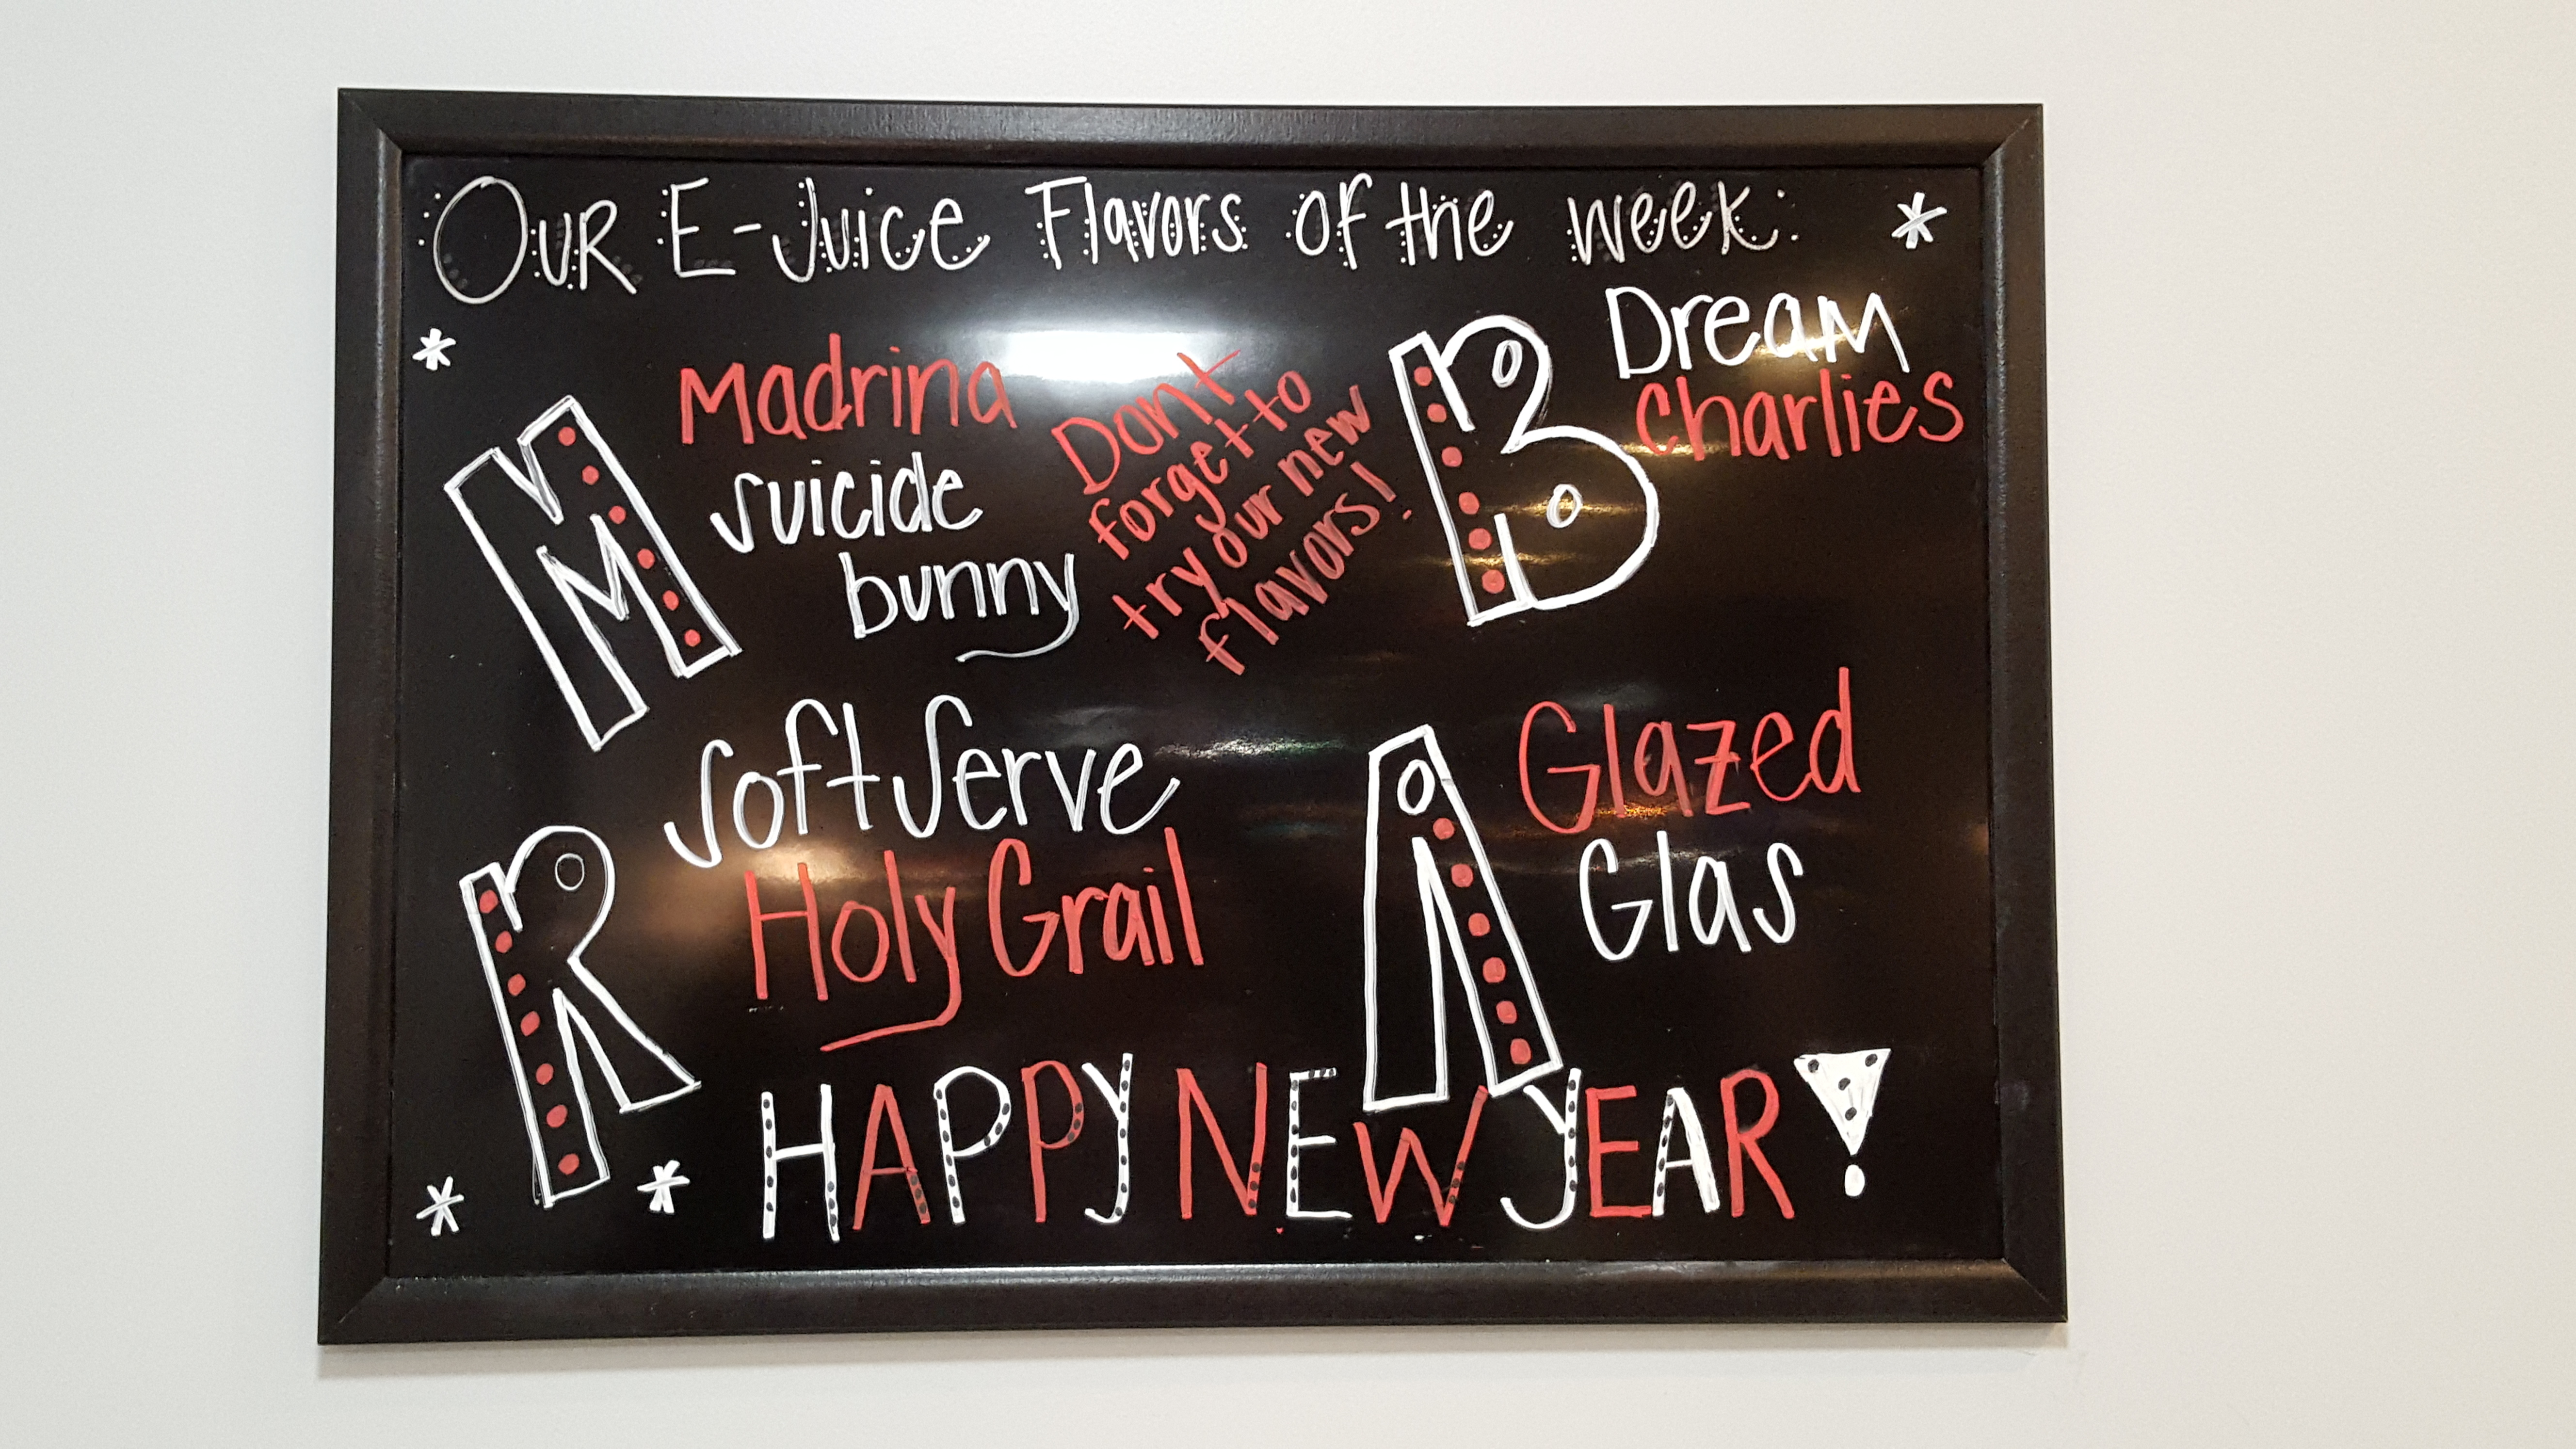 Our E-Juice Flavors of the week:
M
Madrina
suicide
bunny
Dont
forget to
try our new
flavors!
B
Dream
Charlies
R
Soft Serve
Holy Grail
A
Glazed
Glas
HAPPY NEW YEAR!